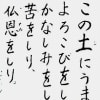 この土にうま
よろこびをし
かなしみをし
苦をしり、
仏恩をしり